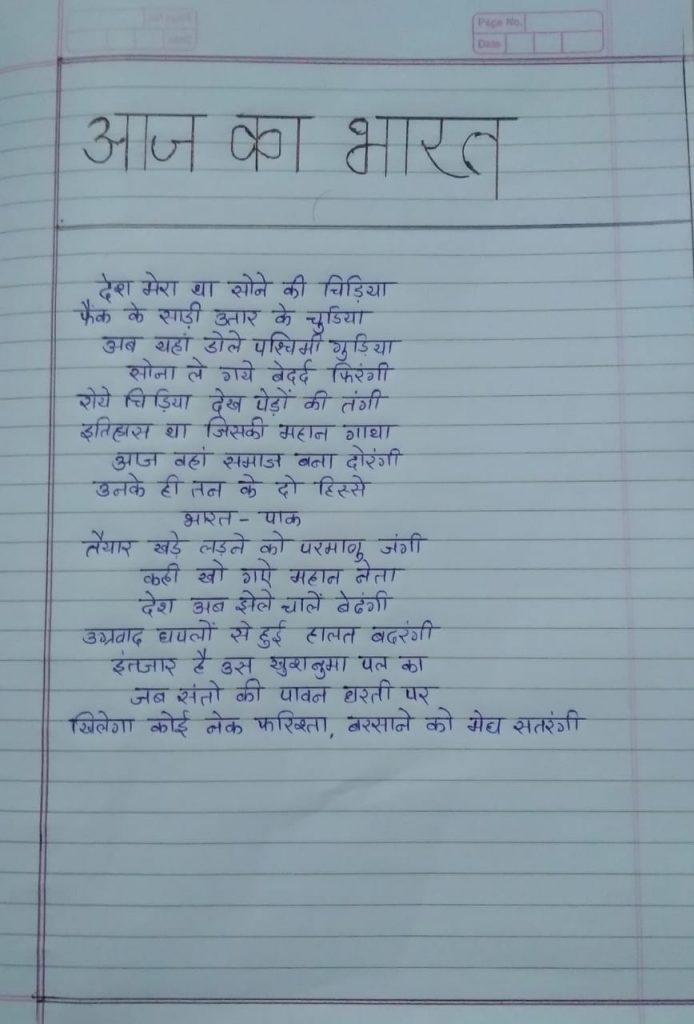 Page No.
Date
आज का भारत
देश मेरा था सोने की चिड़िया
फैंक के साड़ी उतार के चुडिया
अब यहां डोले पश्चिमी गुड़िया
सोना ले गये बेदर्द फिरंगी
रोये चिड़िया देख पेड़ों की तंगी
इतिहास था जिसकी महान गाथा
आज वहां समाज बना दोरंगी
उनके ही तन के दो हिस्से
भारत - पाक
तैयार खड़े लड़ने को परमाणु जंगी
कही खो गऐ महान नेता
देश अब झेले चालें बेढंगी
उग्रवाद घपलों से हुई हालत बदरंगी
इंतजार है उस खुशनुमा पल का
जब संतो की पावन धरती पर
खिलेगा कोई नेक फरिश्ता, बरसाने को मेघ सतरंगी